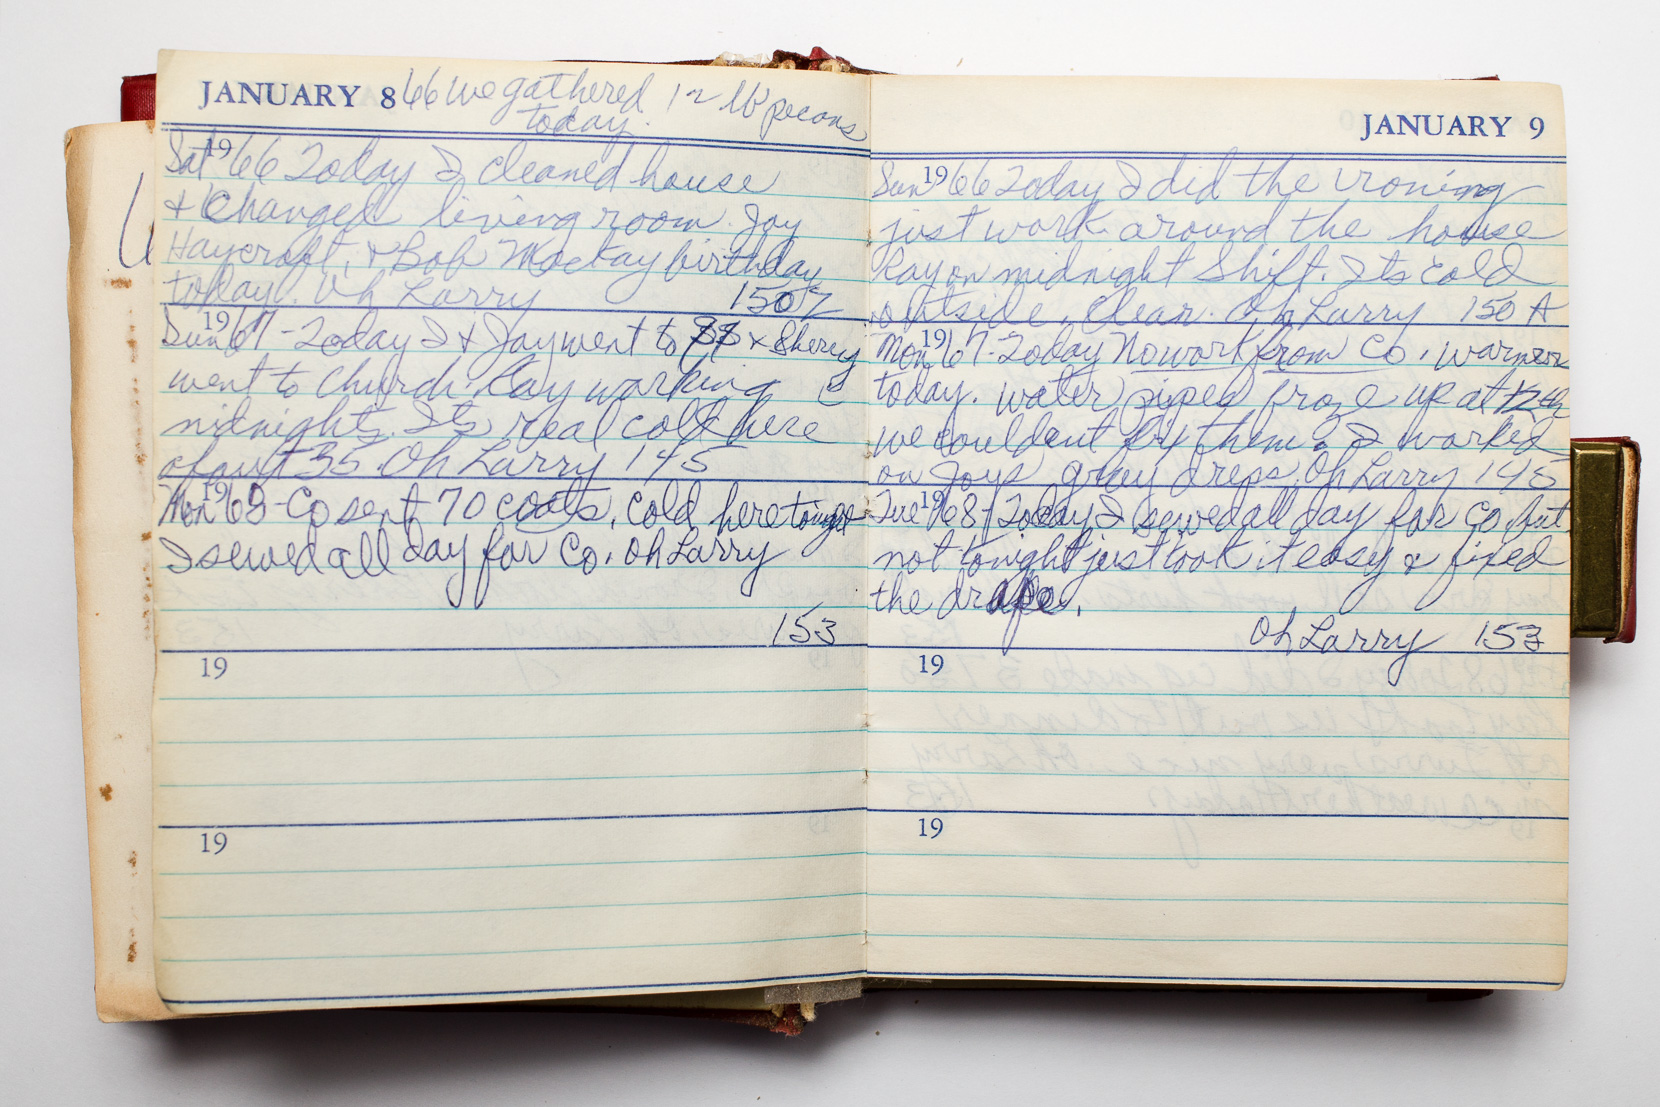 JANUARY 8 66 we gathered 12 lb pecans
today.
Sat 1966 Today I cleaned house
& Changed living room. Joy
Haycraft, & Bob Mackay birthday
today. Oh Larry 150½
Sun 1967 - Today I & Joy went to SS & Sherry
went to Church. Ray working
midnights. Its real cold here
about 35. Oh Larry 145
Mon 1968 - Co sent 70 coats, cold here
I sewed all day for Co. Oh Larry
153
19
19
JANUARY 9
Sun 1966 Today I did the ironing
just work around the house
Ray on midnight Shift. Its cold
outside, clear. Oh Larry 150 A
Mon 1967 - Today No work from Co. warmer
today. water pipes froze up at
we couldent fix them. I worked
on Joys gray dress. Oh Larry 145
Tue 1968 - Today I sewed all day for Co, but
not tonight just took it easy & fixed
the drape.
Oh Larry 153
19
19